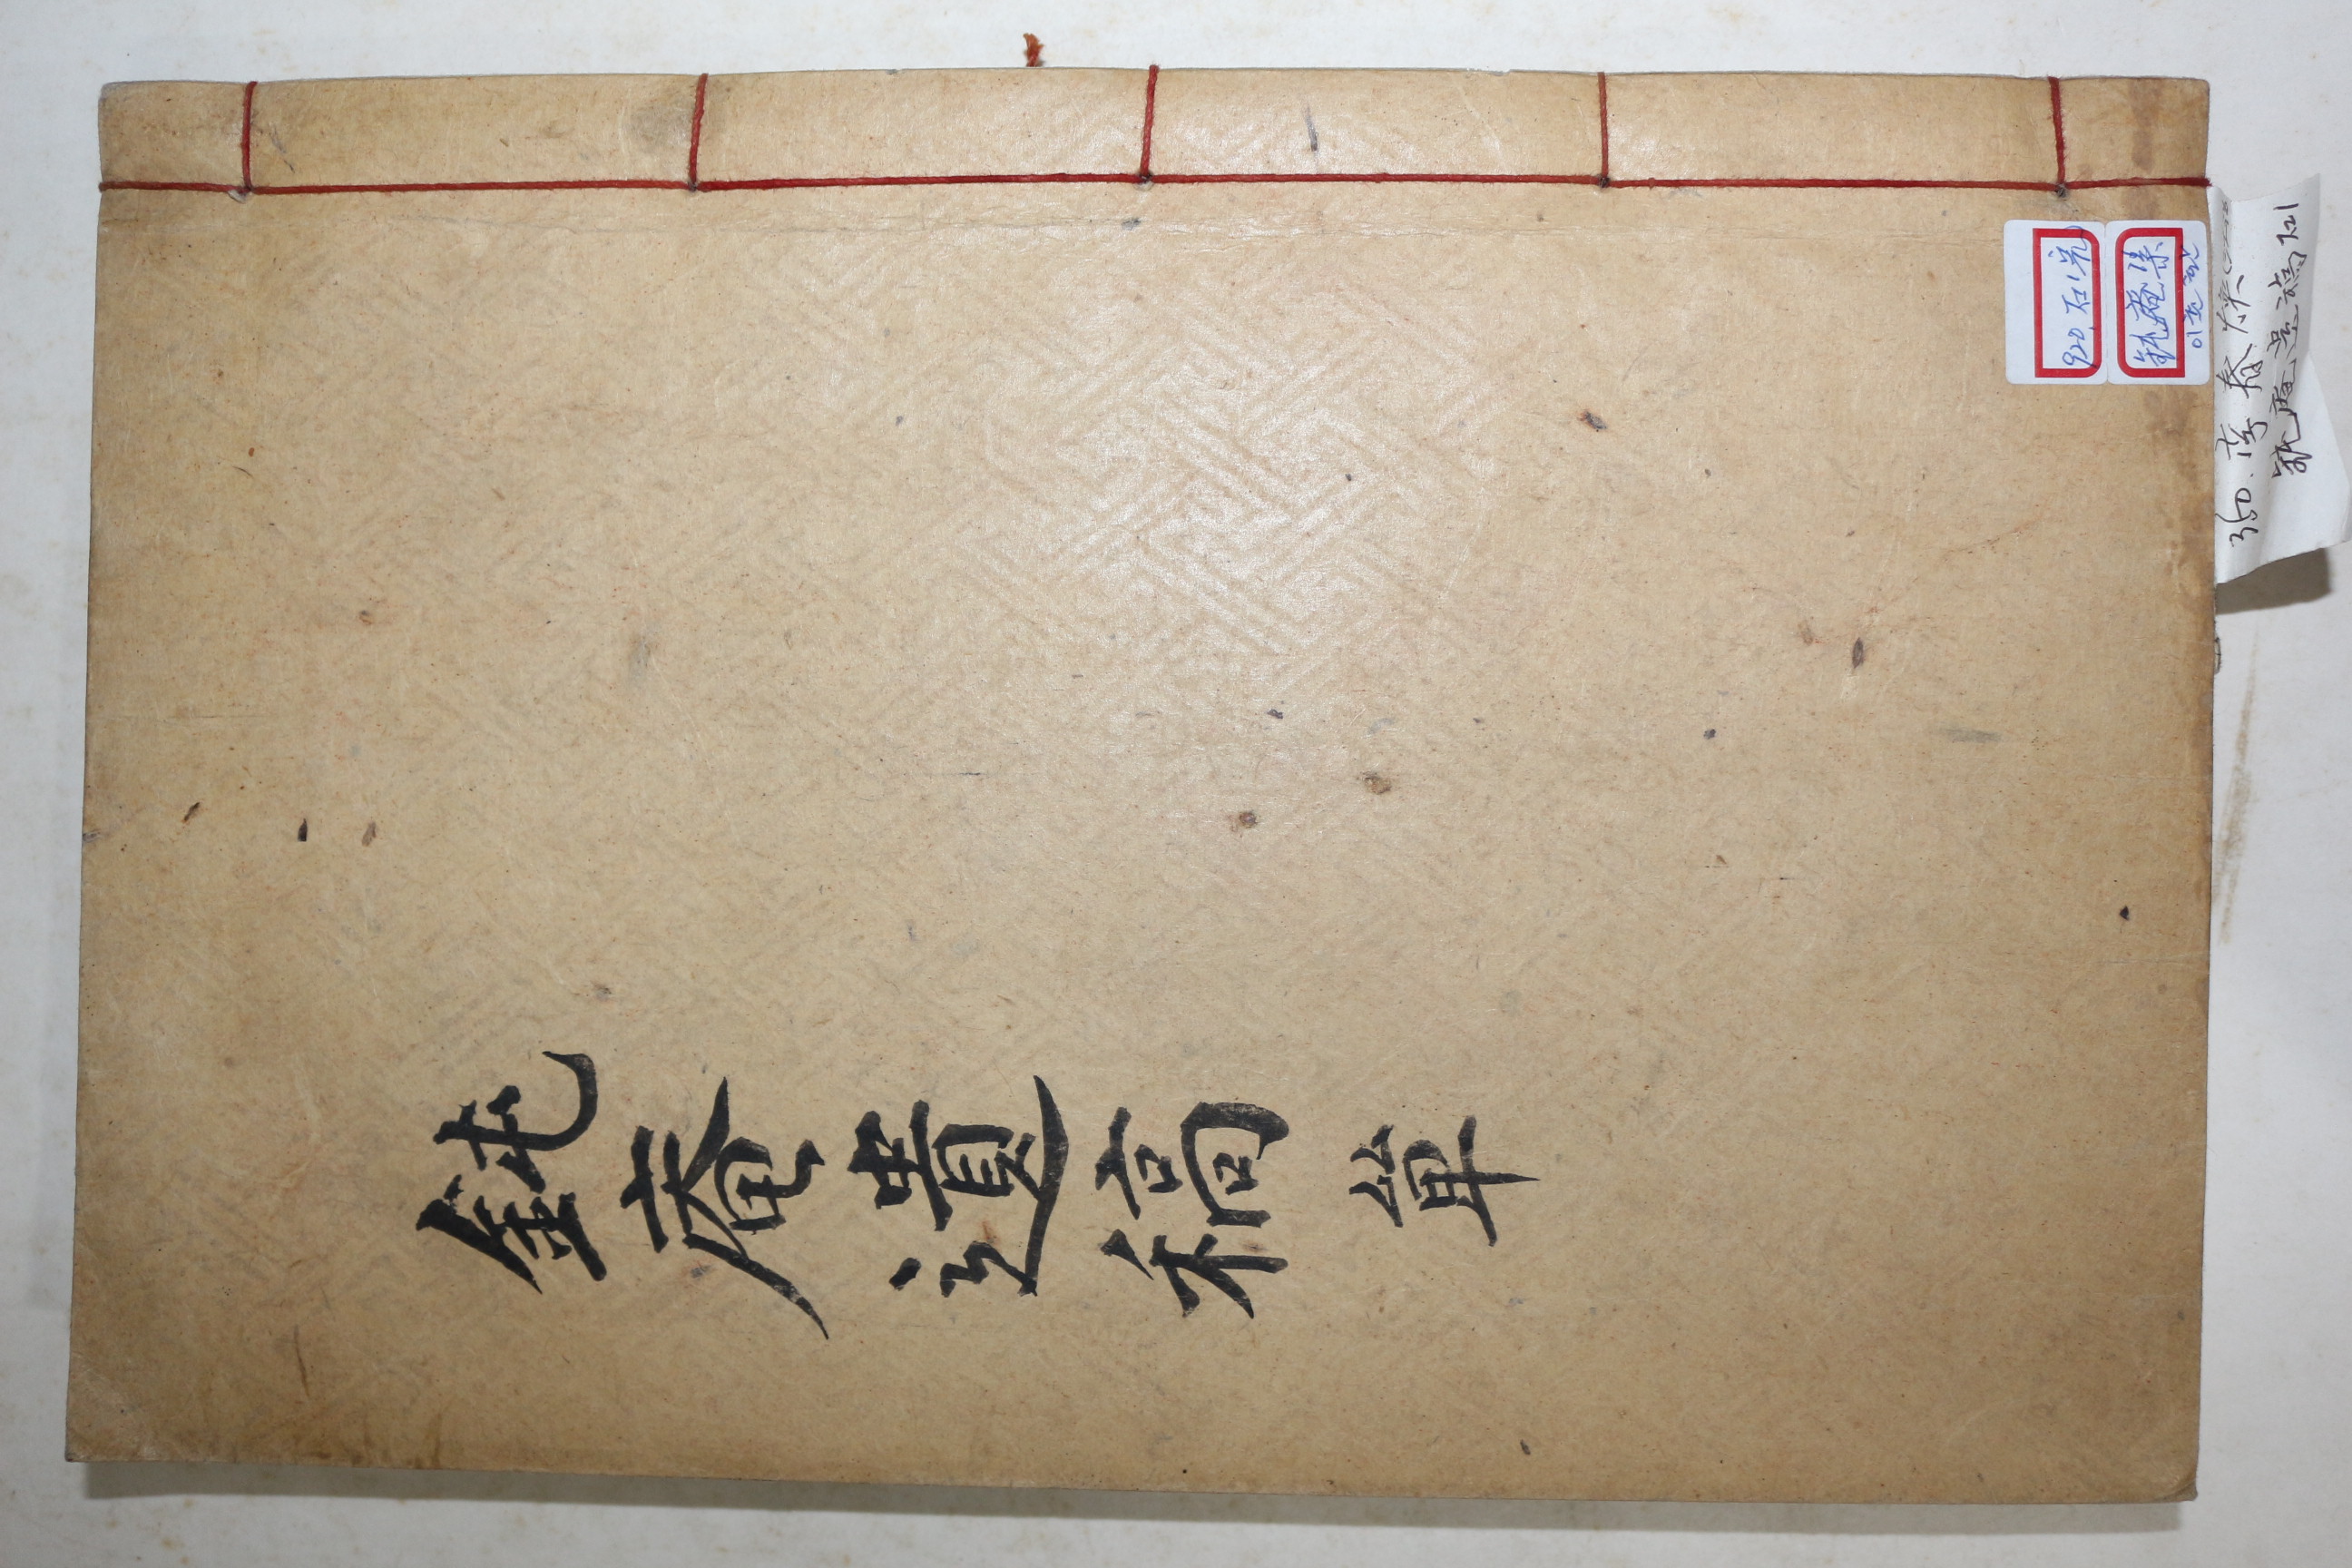 鈍庵遺稿 單
920, 石1完
鈍庵集
350. 李春煥
鈍庵遺稿 石1